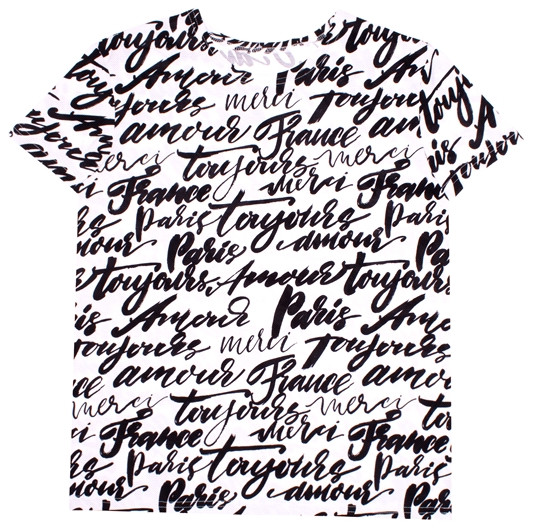 toujours toujours
Amour Paris
toujours merci Toujours
amour France am
merci toujours merci
France merci Fran
Paris toujours Paris
mour Paris amour Pa
toujours Amour toujours
is Amour Paris Amo
toujours merci Toujours
ce amour France amou
merci toujours merci to
i France merci Fran
rs Paris toujours Paris
mour Paris amour Pa